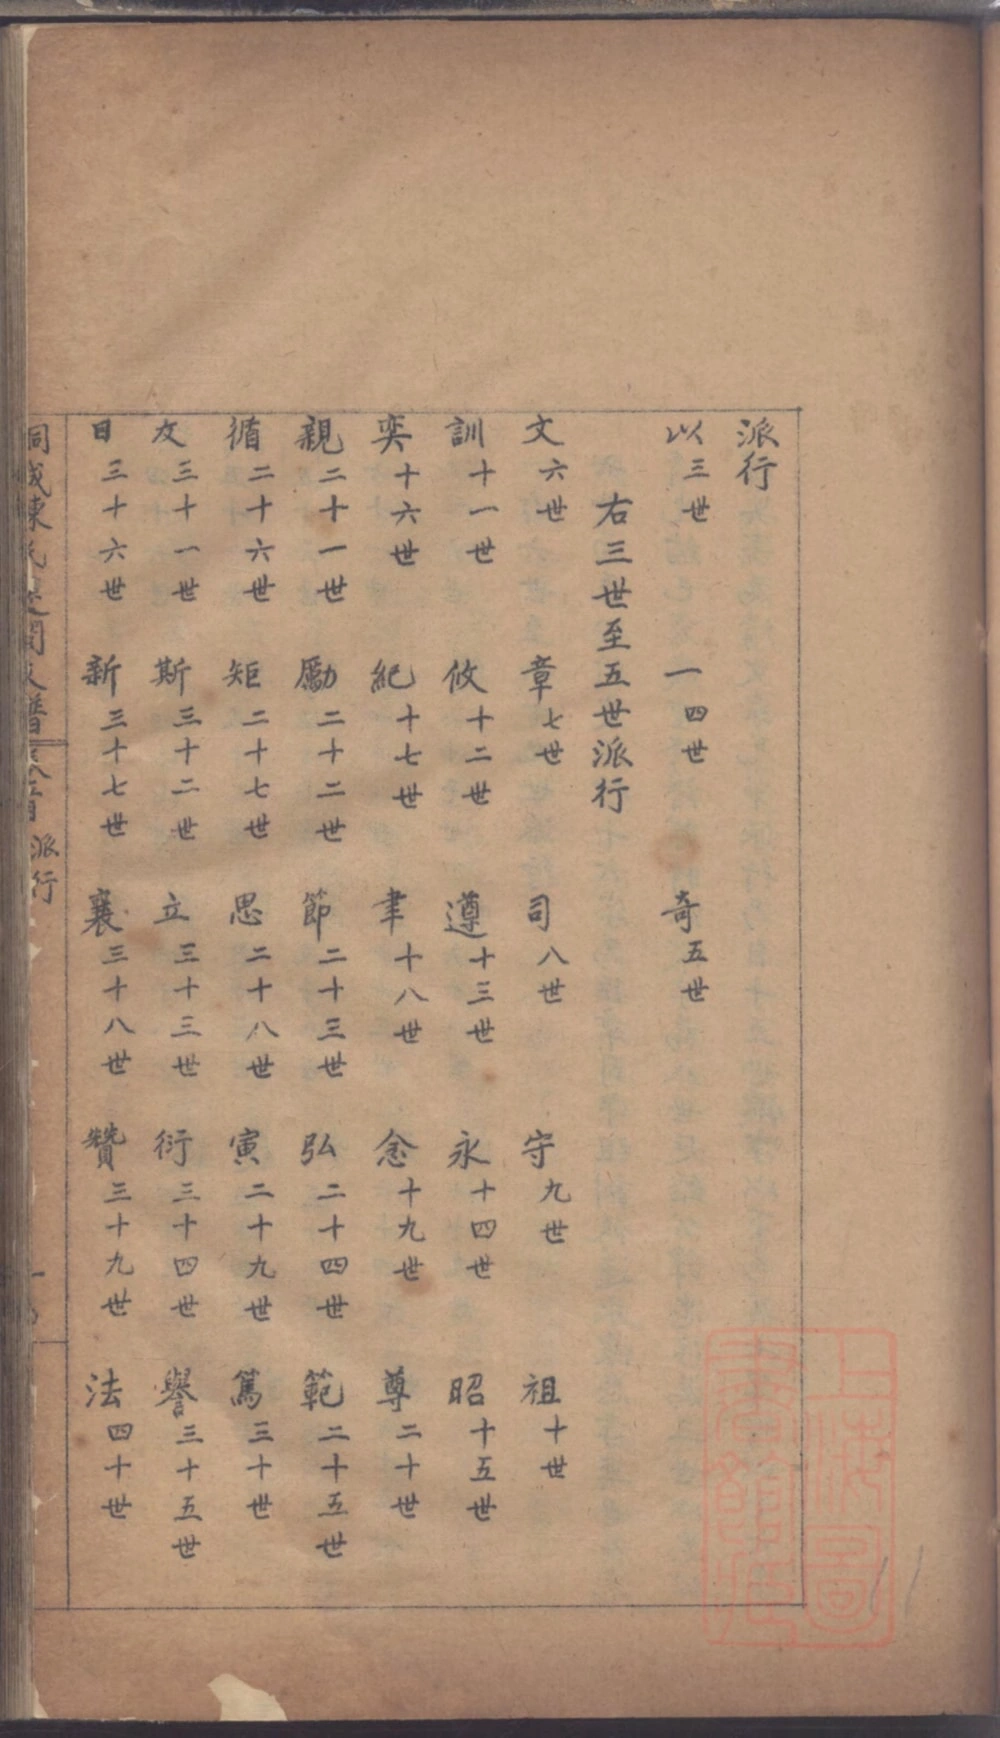 派行
以三世 一四世 奇五世
右三世至五世派行
文六世 章七世 司八世 守九世 祖十世
訓十一世 攸十二世 遵十三世 永十四世 昭十五世
奕十六世 紀十七世 聿十八世 念十九世 尊二十世
親二十一世 勵二十二世 節二十三世 弘二十四世 範二十五世
循二十六世 矩二十七世 思二十八世 寅二十九世 篤三十世
友三十一世 斯三十二世 立三十三世 衍三十四世 譽三十五世
日三十六世 新三十七世 襄三十八世 贊三十九世 法四十世
派行
上海圖書館藏